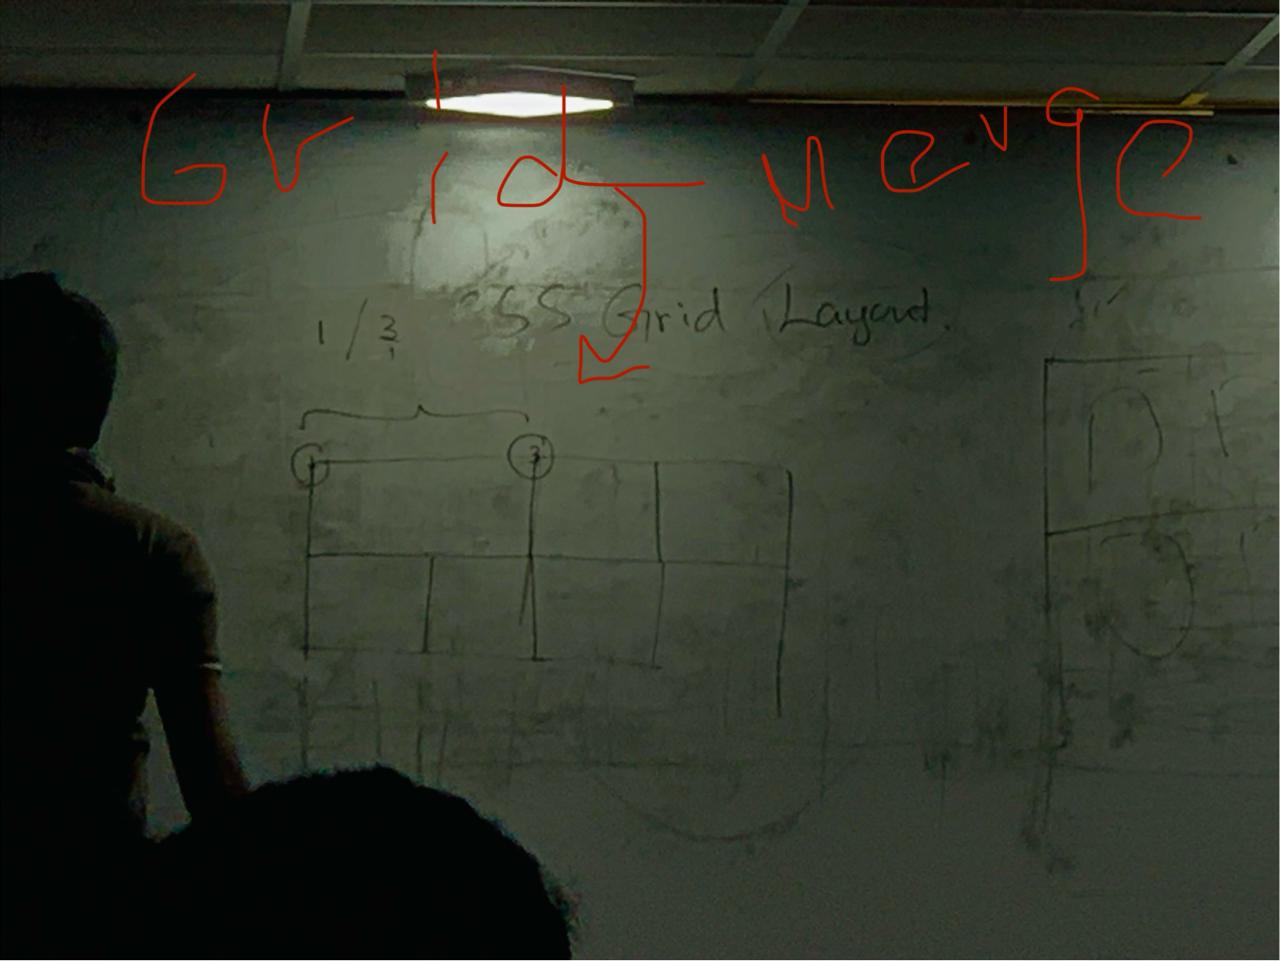 Grid merge
1/3 CSS Grid Layout.
1 3